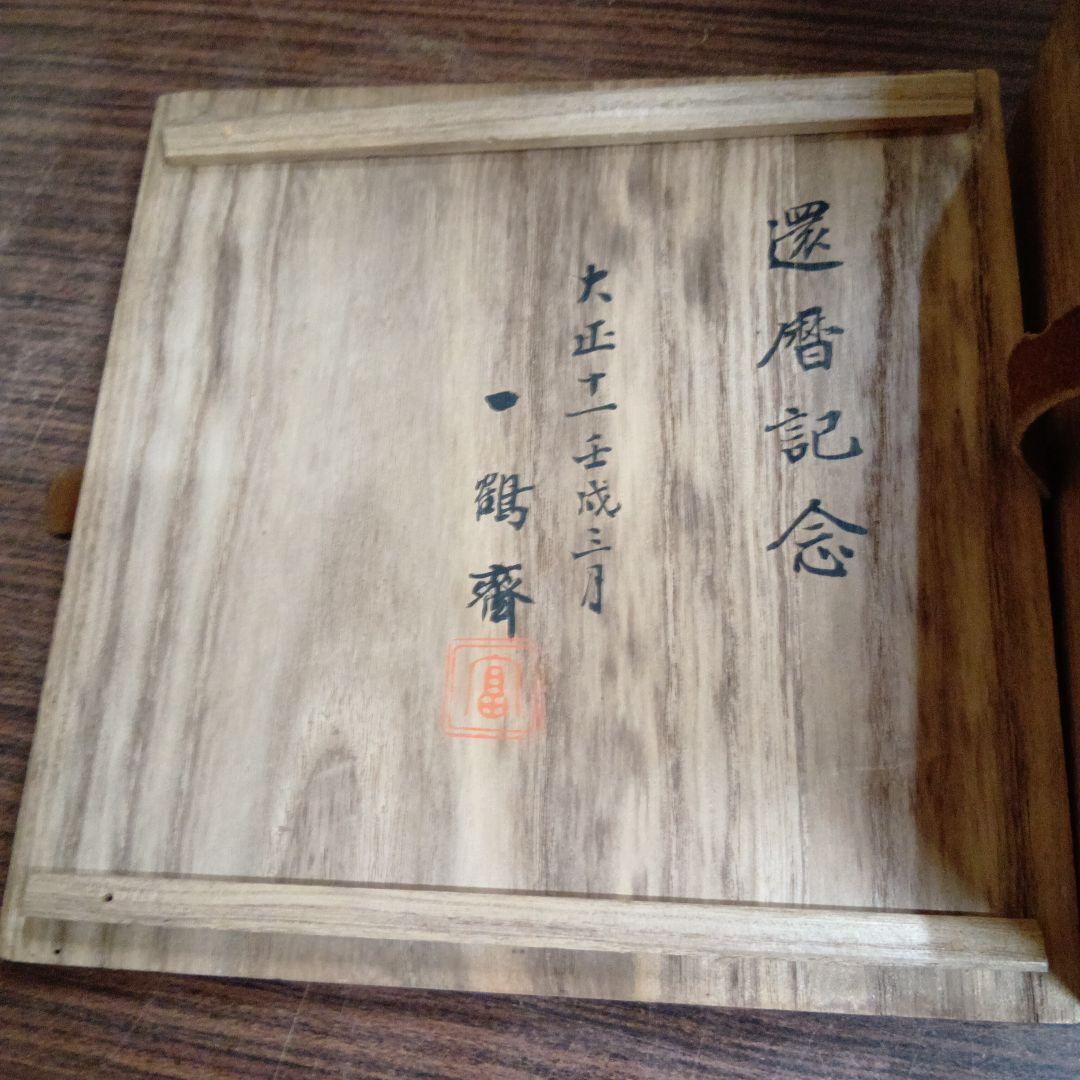 還暦記念
大正十一壬戌三月
一鶴斎
富